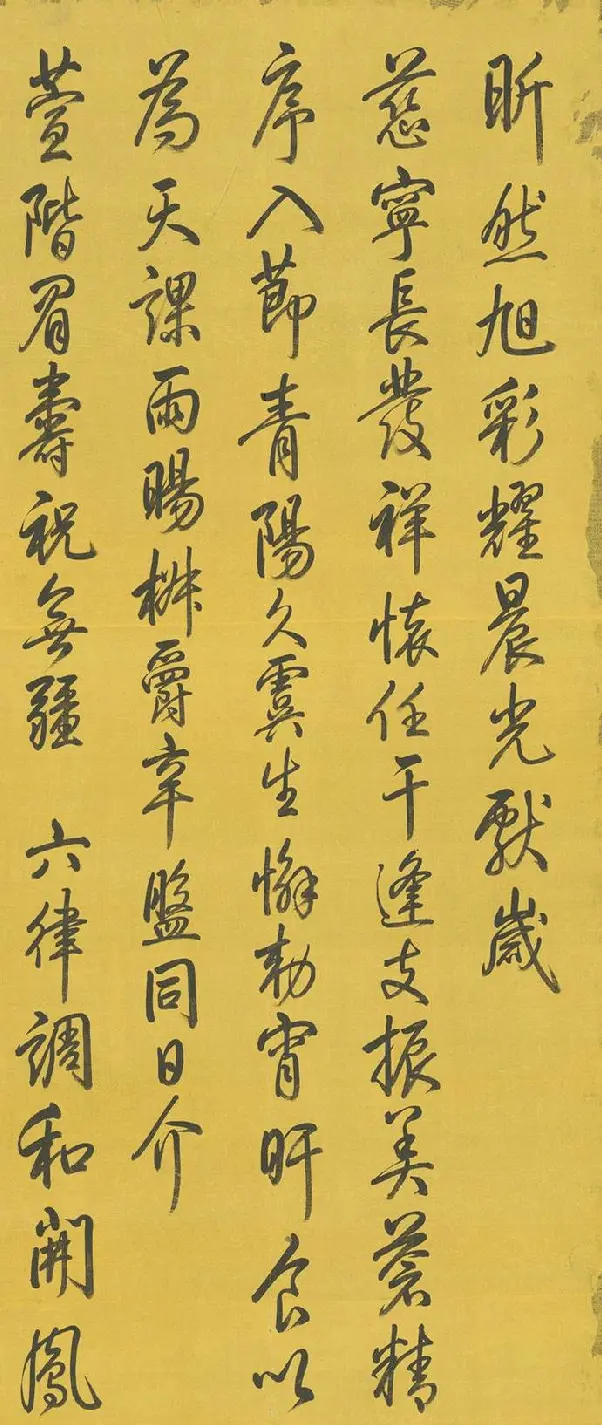 昕然旭彩耀晨光獻歲
慈寧長發祥懷任干逢支振美蒼精
序入節青陽久虞生懈勅宵旰食以
為天課雨暘椒爵辛盤同日介
萱階眉壽祝無疆 六律調和開鳳